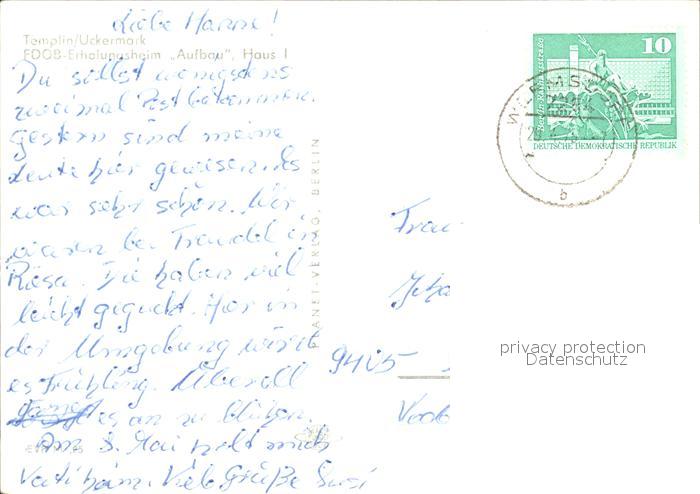 Liebe Hanne!
Templin/Uckermark
FDGB-Erholungsheim „Aufbau", Haus I
Du sollst wenigstens
zweimal Post bekommen.
Gestern sind meine
Leute hier gewesen. Es
war sehr schön. Wir
waren bei Traudel in
Riesa. Die haben viel
leicht geguckt. Hier in
der Umgebung wird
es Frühling. Überall
fängt es an zu blühen.
Am 3. Mai holt mich
Vati heim. Viele Grüße Susi
PLANET-VERLAG, BERLIN
10
DEUTSCHE DEMOKRATISCHE REPUBLIK
b
Frau
9405
privacy protection
Datenschutz